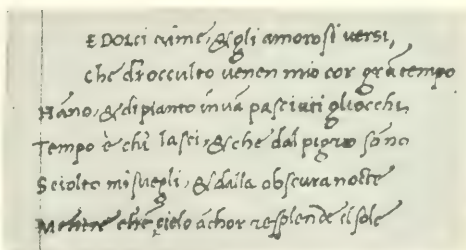 E DOLCI rime, & gli amorosi versi,
Che d'occulto venen mio cor grã tempo
Hãno, & di pianto in vã pasciuti gliocchi,
Tempo è ch'i lasci, & che dal pigro sõno
Sciolto mi svegli, & dalla obscura notte
Mentre che'l cielo ãchor resplende el sole